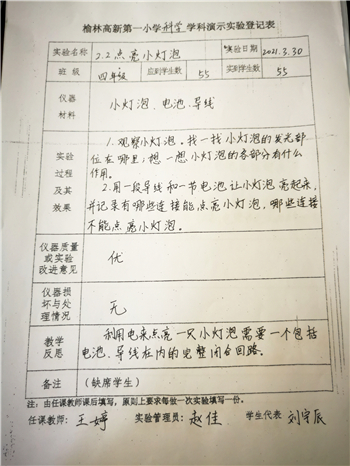 榆林高新第一小学科学学科演示实验登记表
实验名称 2.2点亮小灯泡 实验日期 2021.3.30
班级 四年级 应到学生数 55 实到学生数 55
仪器材料 小灯泡、电池、导线
实验过程及其效果
1.观察小灯泡。找一找小灯泡的发光部
位在哪里;想一想小灯泡的各部分有什么
作用。
2.用一段导线和一节电池让小灯泡亮起来,
并记录有哪些连接能点亮小灯泡,哪些连接
不能点亮小灯泡。
仪器质量或实验改进意见 优
仪器损坏与处理情况 无
教学反思
利用电来点亮一只小灯泡需要一个包括
电池、导线在内的完整闭合回路。
备注 (缺席学生)
注:由任课教师课后填写,原则上要求每做一次实验填写一份。
任课教师:王婷 实验管理员:赵佳 学生代表 刘宇辰